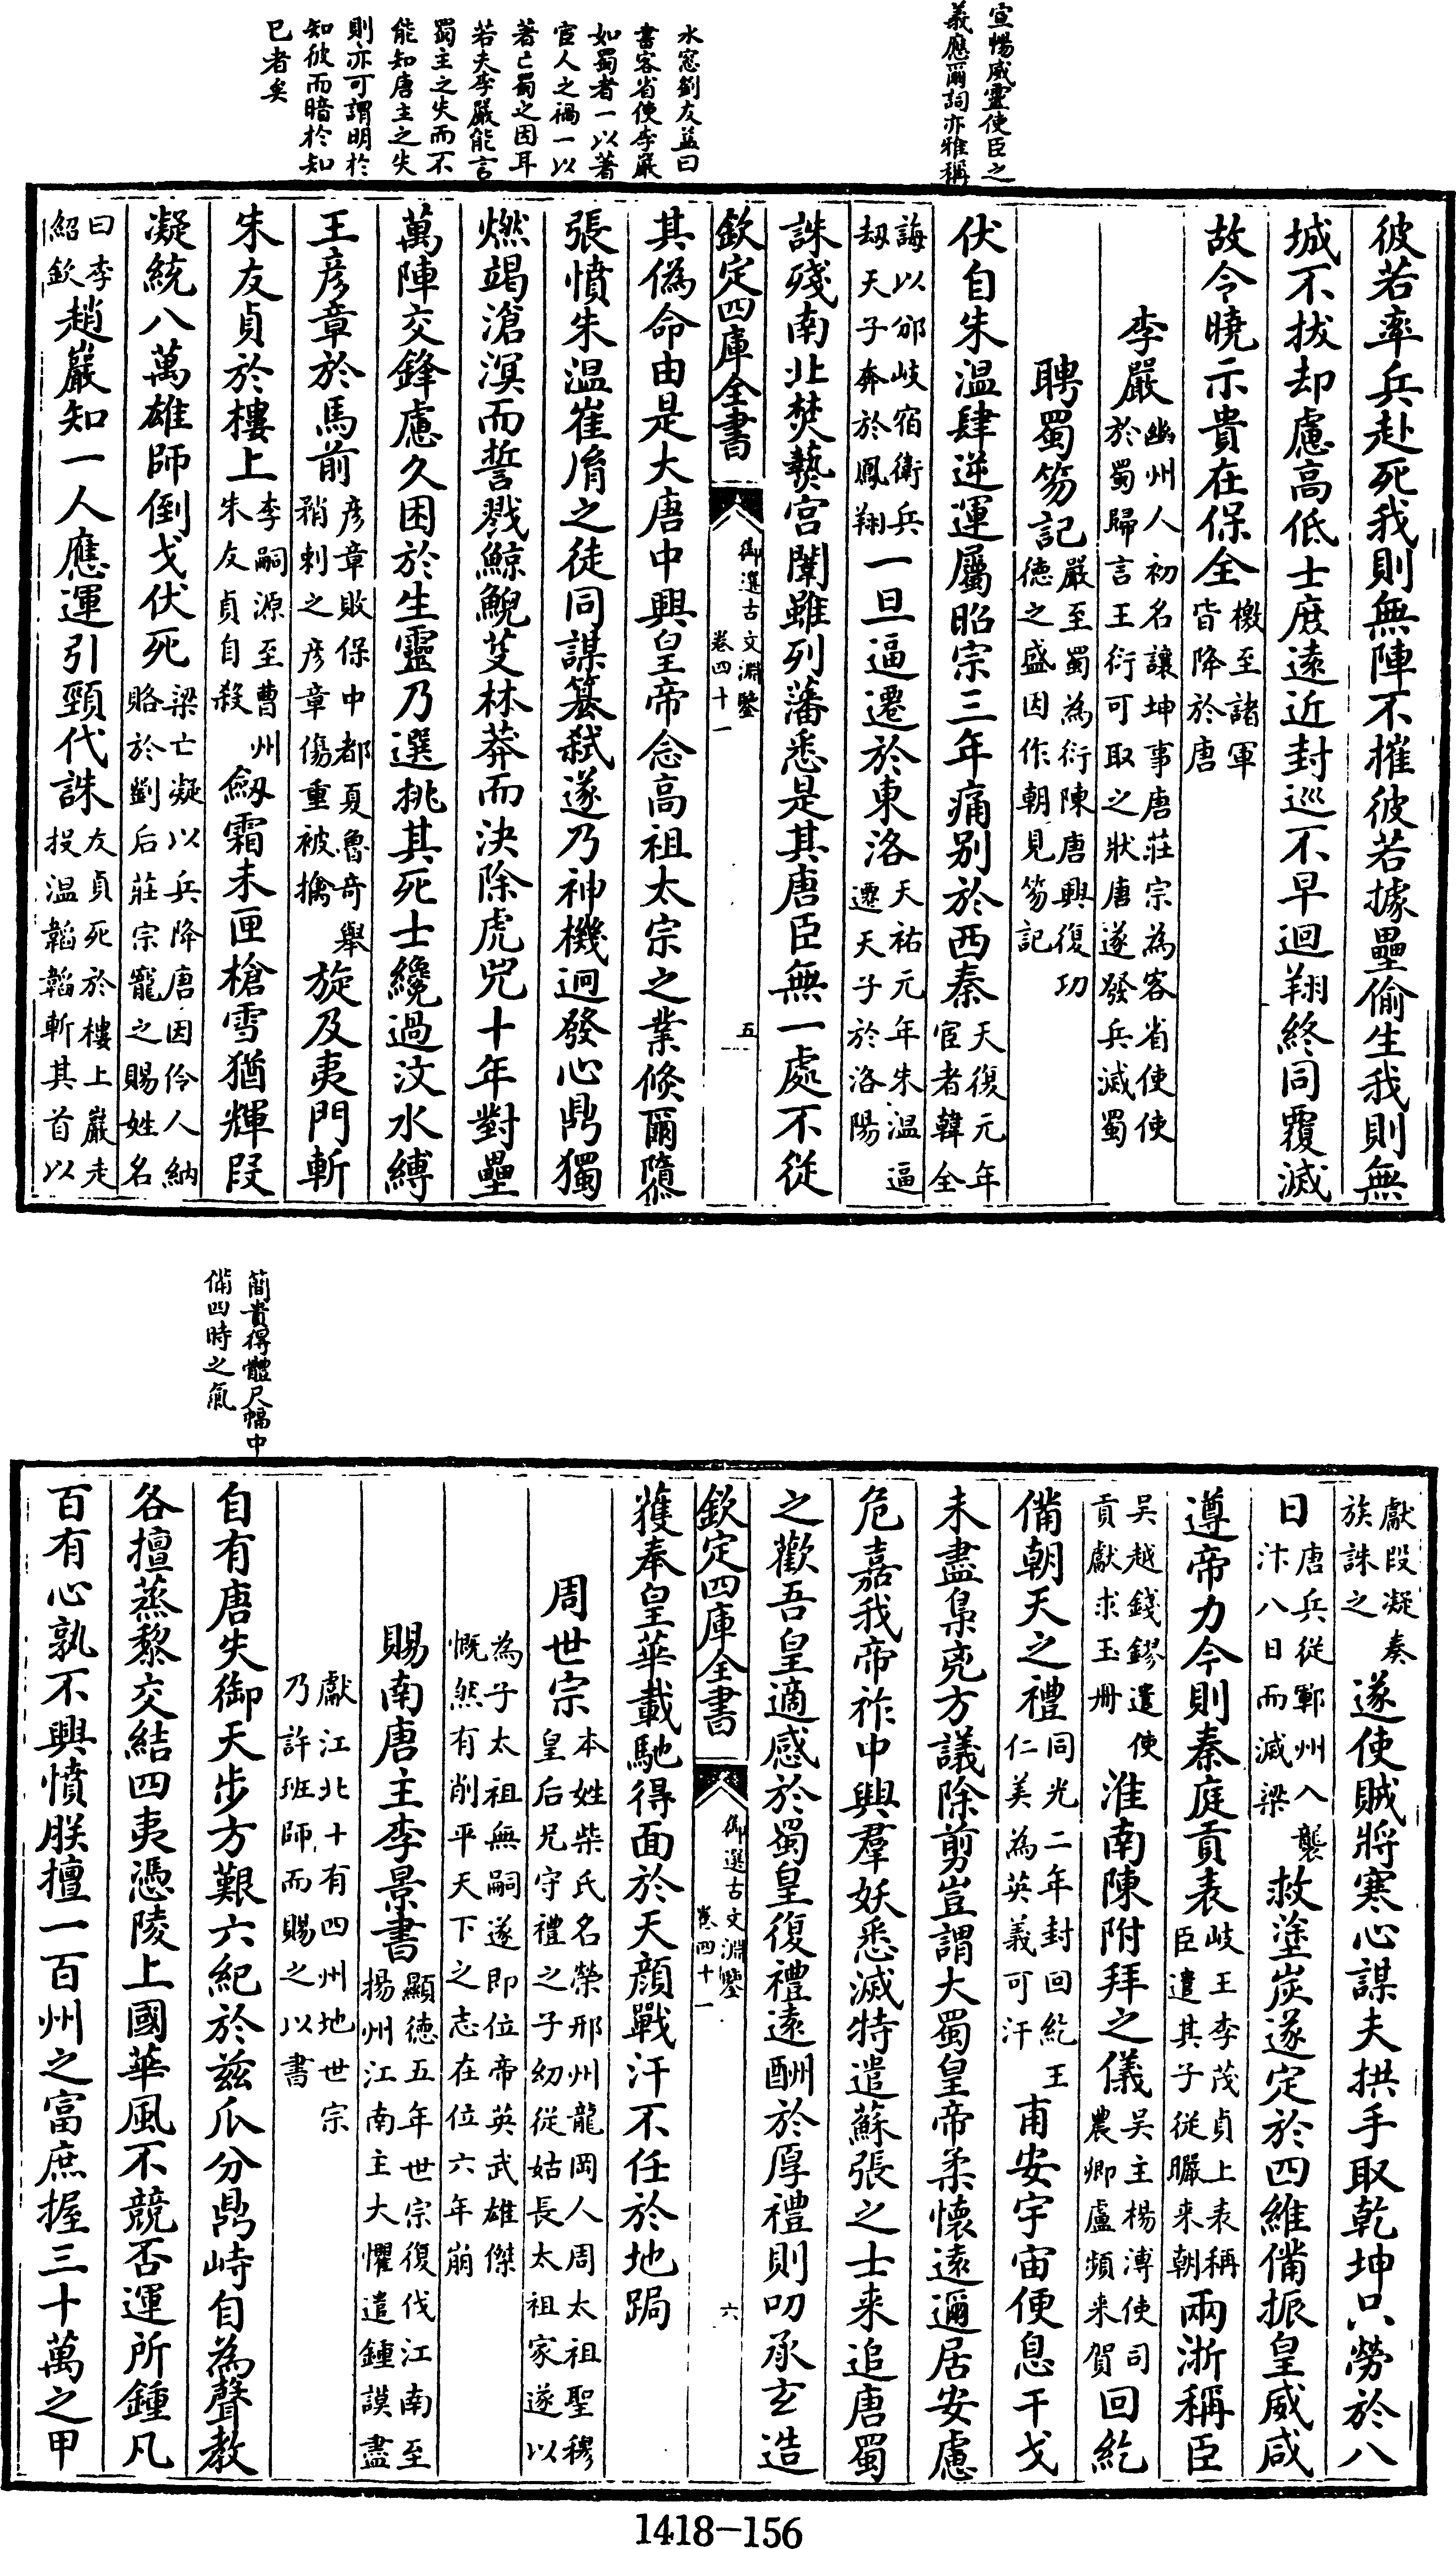 宣暢威靈使臣之
義應爾詞亦雅稱
水窓劉友益曰
書客省使李嚴
如蜀者一以著
宦人之禍一以
著亡蜀之因耳
若夫李嚴能言
蜀主之失而不
能知唐主之失
則亦可謂明於
知彼而暗於知
已者矣
彼若率兵赴死我則無陣不摧彼若據壘偷生我則無
城不拔却慮高低士庶遠近封廵不早迴翔終同覆滅
故令曉示貴在保全檄至諸軍皆降於唐
李嚴幽州人初名讓坤事唐莊宗為客省使使於蜀歸言王衍可取之狀唐遂發兵滅蜀
聘蜀笏記嚴至蜀為衍陳唐興復功德之盛因作朝見笏記
伏自朱温肆逆運屬昭宗三年痛别於西秦天復元年宦者韓全
誨以邠岐宿衛兵刼天子奔於鳳翔一旦逼遷於東洛天祐元年朱温逼遷天子於洛陽
誅殘南北焚爇宫闈雖列藩悉是其唐臣無一處不從
欽定四庫全書
御選古文淵鑒
卷四十一
五
其偽命由是大唐中興皇帝念高祖太宗之業倐爾隳
張憤朱温崔胤之徒同謀簒弑遂乃神機迥發心鼎獨
燃竭滄溟而誓戮鯨鯢芟林莽而決除虎兕十年對壘
萬陣交鋒慮久困於生靈乃選挑其死士纔過汶水縛
王彦章於馬前彦章敗保中都夏魯竒舉矟刺之彦章傷重被擒旋及夷門斬
朱友貞於樓上李嗣源至曹州朱友貞自殺劔霜未匣槍雪猶輝段
凝統八萬雄師倒戈伏死梁亡凝以兵降唐因伶人納賂於劉后莊宗寵之賜姓名
曰李紹欽趙嚴知一人應運引頸代誅友貞死於樓上嚴走投温韜韜斬其首以
簡貴得體尺幅中
備四時之氣
獻段凝奏族誅之遂使賊將寒心謀夫拱手取乾坤只勞於八
日唐兵從鄆州入襲汴八日而滅梁救塗炭遂定於四維備振皇威咸
遵帝力今則秦庭貢表岐王李茂貞上表稱臣遣其子從曮来朝兩浙稱臣
吴越錢鏐遣使貢獻求玉冊淮南陳附拜之儀吴主楊溥使司農卿盧頻来賀回紇
備朝天之禮同光二年封回紇王仁美為英義可汗甫安宇宙便息干戈
未盡梟兇方議除剪豈謂大蜀皇帝柔懷遠邇居安慮
危嘉我帝祚中興羣妖悉滅特遣蘇張之士来追唐蜀
之歡吾皇適感於蜀皇復禮遠酬於厚禮則叨承玄造
欽定四庫全書
御選古文淵鑒
卷四十一
六
獲奉皇華載馳得面於天顔戰汗不任於地跼
周世宗本姓柴氏名榮邢州龍岡人周太祖聖穆皇后兄守禮之子幼從姑長太祖家遂以
為子太祖無嗣遂即位帝英武雄傑慨然有削平天下之志在位六年崩
賜南唐主李景書顯德五年世宗復伐江南至揚州江南主大懼遣鍾謨盡
獻江北十有四州地世宗乃許班師而賜之以書
自有唐失御天步方艱六紀於兹瓜分鼎峙自為聲教
各擅蒸黎交結四夷憑陵上國華風不競否運所鍾凡
百有心孰不興憤朕擅一百州之富庶握三十萬之甲
1418-156